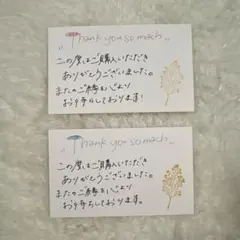 Thank you so much
この度はご購入いただき
ありがとうございました。
またのご縁を心より
お待ちしております!
Thank you so much
この度はご購入いただき
ありがとうございました。
またのご縁を心より
お待ちしております。